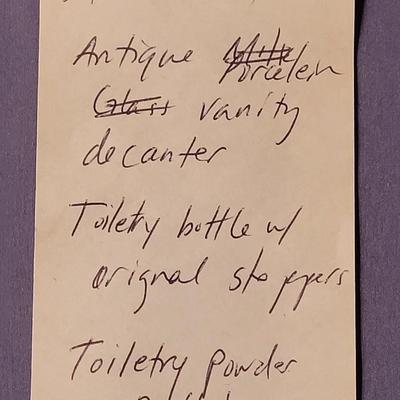 Antique ~~Milk~~ Porcelein
~~Glass~~ vanity
decanter
Toiletry bottle w/
orignal stoppers
Toiletry powder